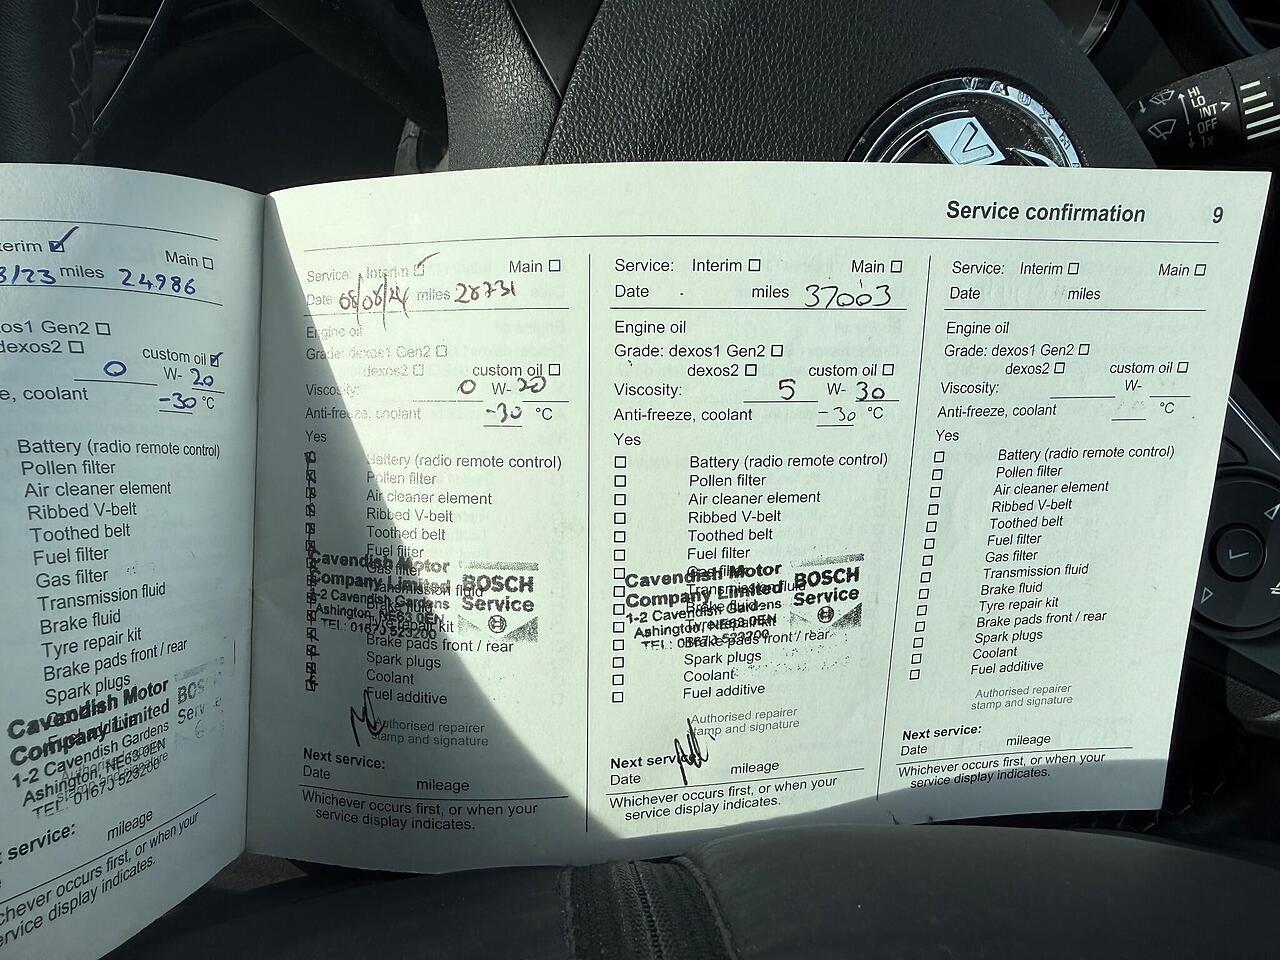 HI
LO
INT >
OFF
1x
V A U X
Service confirmation 9
terim Main
3/23 miles 24986
xos1 Gen2
dexos2
custom oil
0 W- 20
e, coolant -30 °C
Battery (radio remote control)
Pollen filter
Air cleaner element
Ribbed V-belt
Toothed belt
Fuel filter
Gas filter
Transmission fluid
Brake fluid
Tyre repair kit
Brake pads front / rear
Spark plugs
Cavendish Motor
Company Limited
1-2 Cavendish Gardens
Ashington, NE63 0EN
TEL: 01670 523200
BOS
Serv
t service:
mileage
chever occurs first, or when your
ervice display indicates.
Service: Interim Main
Date 08/08/24 miles 28731
Engine oil
Grade: dexos1 Gen2
dexos2 custom oil
Viscosity: 0 W- 20
Anti-freeze, coolant -30 °C
Yes
Battery (radio remote control)
Pollen filter
Air cleaner element
Ribbed V-belt
Toothed belt
Fuel filter
Gas filter
Transmission fluid
Brake fluid
Tyre repair kit
Brake pads front / rear
Spark plugs
Coolant
Fuel additive
Cavendish Motor
Company Limited
1-2 Cavendish Gardens
Ashington, NE63 0EN
TEL: 01670 523200
BOSCH
Service
Authorised repairer
stamp and signature
Next service:
Date mileage
Whichever occurs first, or when your
service display indicates.
Service: Interim Main
Date miles 37003
Engine oil
Grade: dexos1 Gen2
dexos2 custom oil
Viscosity: 5 W- 30
Anti-freeze, coolant -30 °C
Yes
Battery (radio remote control)
Pollen filter
Air cleaner element
Ribbed V-belt
Toothed belt
Fuel filter
Gas filter
Transmission fluid
Brake fluid
Tyre repair kit
Brake pads front / rear
Spark plugs
Coolant
Fuel additive
Cavendish Motor
Company Limited
1-2 Cavendish Gardens
Ashington, NE63 0EN
TEL: 01670 523200
BOSCH
Service
Authorised repairer
stamp and signature
Next service:
Date mileage
Whichever occurs first, or when your
service display indicates.
Service: Interim Main
Date miles
Engine oil
Grade: dexos1 Gen2
dexos2 custom oil
Viscosity: W-
Anti-freeze, coolant °C
Yes
Battery (radio remote control)
Pollen filter
Air cleaner element
Ribbed V-belt
Toothed belt
Fuel filter
Gas filter
Transmission fluid
Brake fluid
Tyre repair kit
Brake pads front / rear
Spark plugs
Coolant
Fuel additive
Authorised repairer
stamp and signature
Next service:
Date mileage
Whichever occurs first, or when your
service display indicates.